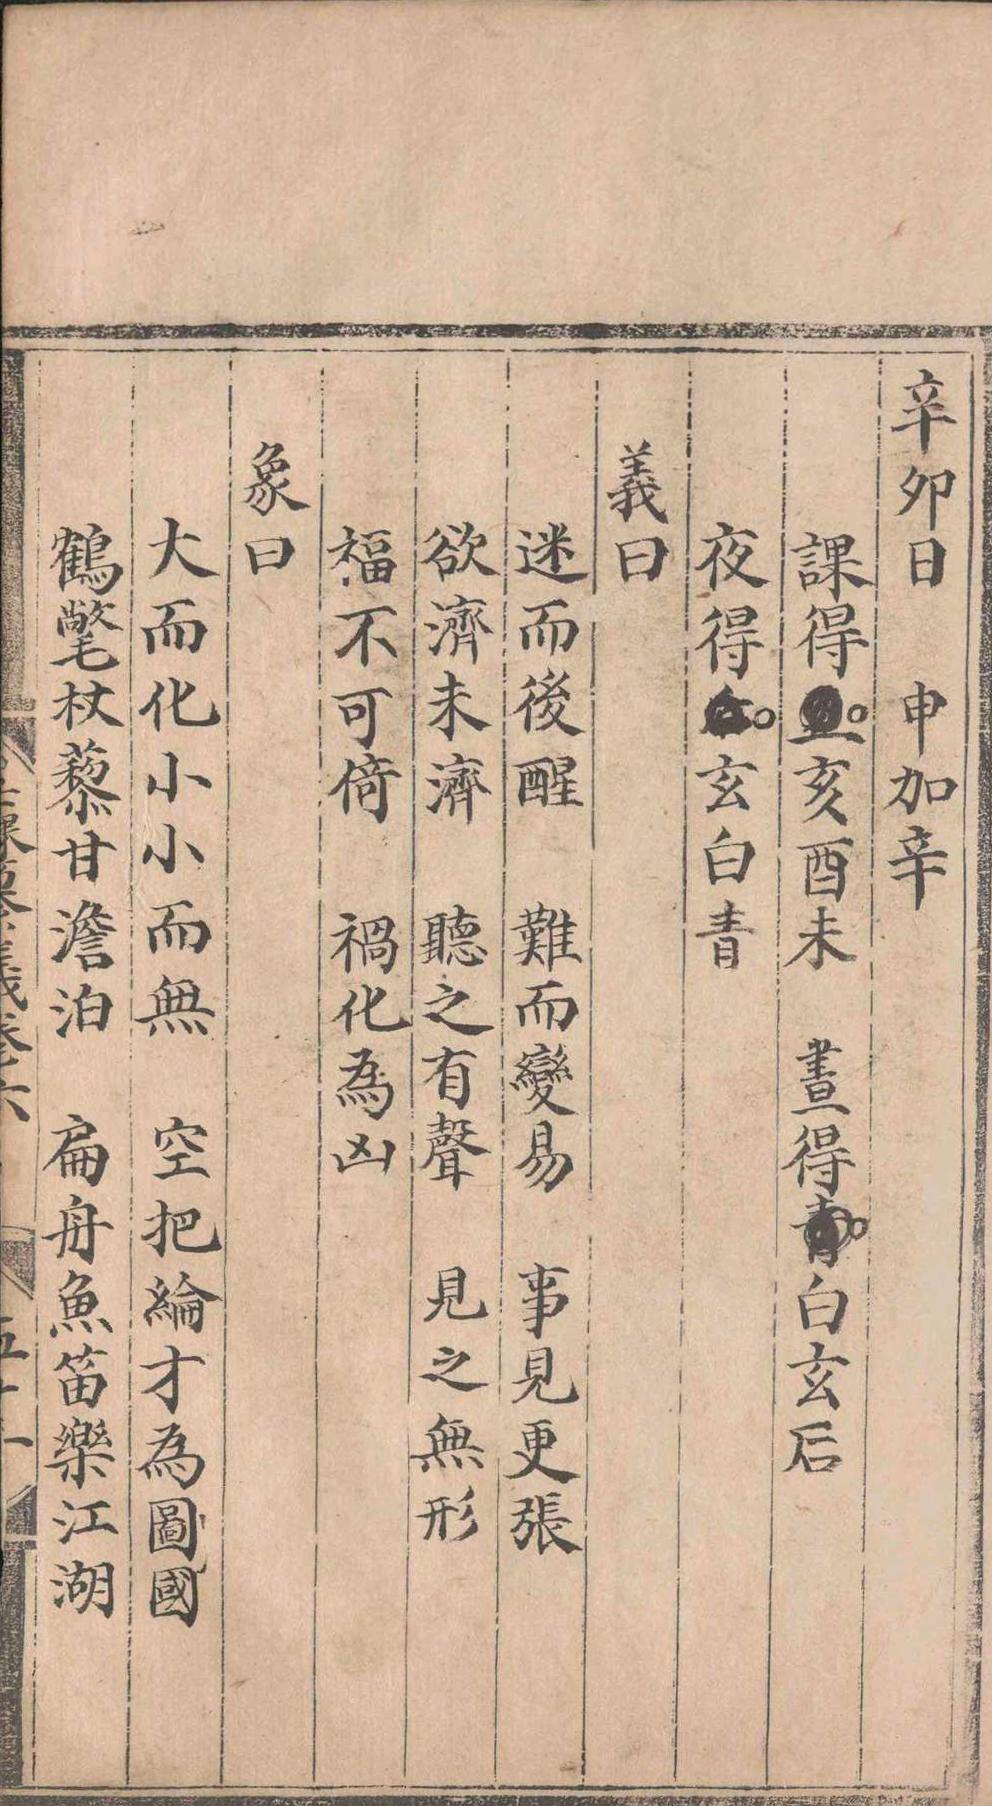 辛卯日　申加辛
課得亥酉未　晝得白玄后
夜得玄白青
義曰
迷而後醒　難而變易　事見更張
欲濟未濟　聽之有聲　見之無形
福不可倚　禍化為凶
象曰
大而化小小而無　空把綸才為圖國
鶴氅杖藜甘澹泊　扁舟魚笛樂江湖